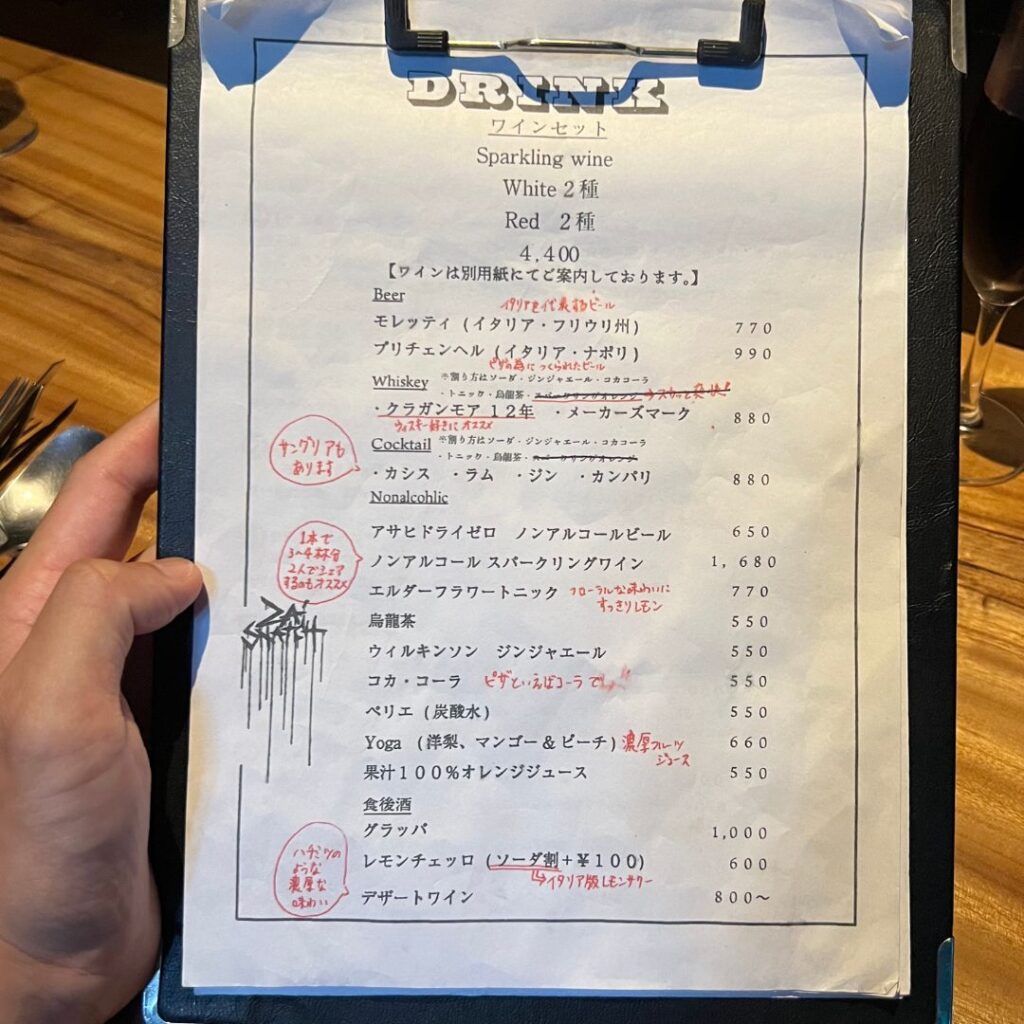 DRINK
ワインセット
Sparkling wine
White 2種
Red 2種
4,400
【ワインは別用紙にてご案内しております。】
Beer
イタリアを代表するビール
モレッティ (イタリア・フリウリ州) 770
プリチェンヘル (イタリア・ナポリ) 990
ピザの為につくられたビール
Whiskey ※割り方はソーダ・ジンジャエール・コカコーラ
・トニック・烏龍茶・スパークリングオレンジ
・クラガンモア 12年 ・メーカーズマーク 880
ウィスキー好きにオススメ
サングリアも
あります
Cocktail ※割り方はソーダ・ジンジャエール・コカコーラ
・トニック・烏龍茶・スパークリングオレンジ
・カシス ・ラム ・ジン ・カンパリ 880
Nonalcohlic
アサヒドライゼロ ノンアルコールビール 650
1本で
3~4杯分
2人でシェア
するのもオススメ
ノンアルコール スパークリングワイン 1,680
エルダーフラワートニック フローラルな味わいに 770
すっきりレモン
烏龍茶 550
ウィルキンソン ジンジャエール 550
コカ・コーラ ピザといえばコーラで 550
ペリエ (炭酸水) 550
Yoga (洋梨、マンゴー&ピーチ) 濃厚フルーツ 660
ジュース
果汁100%オレンジジュース 550
食後酒
グラッパ 1,000
レモンチェッロ (ソーダ割+¥100) 600
イタリア版レモンサワー
ハチミツの
ような
濃厚な
味わい
デザートワイン 800~